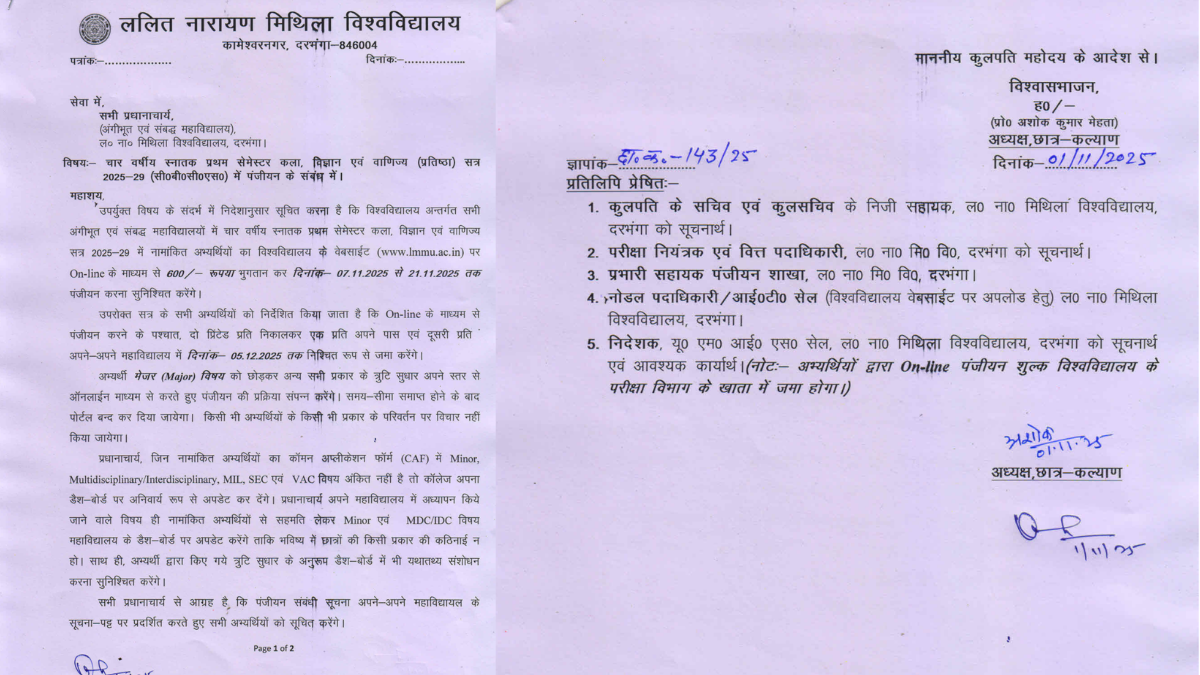 ललित नारायण मिथिला विश्वविद्यालय
कामेश्वरनगर, दरभंगा–846004
पत्रांकः–...................
दिनांकः–..................
सेवा में,
सभी प्रधानाचार्य,
(अंगीभूत एवं संबद्ध महाविद्यालय),
ल० ना० मिथिला विश्वविद्यालय, दरभंगा।
विषयः– चार वर्षीय स्नातक प्रथम सेमेस्टर कला, विज्ञान एवं वाणिज्य (प्रतिष्ठा) सत्र
2025–29 (सी0बी0सी0एस0) में पंजीयन के संबंध में।
महाशय,
उपर्युक्त विषय के संदर्भ में निदेशानुसार सूचित करना है कि विश्वविद्यालय अन्तर्गत सभी
अंगीभूत एवं संबद्ध महाविद्यालयों में चार वर्षीय स्नातक प्रथम सेमेस्टर कला, विज्ञान एवं वाणिज्य
सत्र 2025–29 में नामांकित अभ्यर्थियों का विश्वविद्यालय के वेबसाईट (www.lnmu.ac.in) पर
On-line के माध्यम से 600/– रूपया भुगतान कर दिनांक– 07.11.2025 से 21.11.2025 तक
पंजीयन करना सुनिश्चित करेंगे।
उपरोक्त सत्र के सभी अभ्यर्थियों को निर्देशित किया जाता है कि On-line के माध्यम से
पंजीयन करने के पश्चात, दो प्रिंटेड प्रति निकालकर एक प्रति अपने पास एवं दूसरी प्रति
अपने–अपने महाविद्यालय में दिनांक– 05.12.2025 तक निश्चित रूप से जमा करेंगे।
अभ्यर्थी मेजर (Major) विषय को छोड़कर अन्य सभी प्रकार के त्रुटि सुधार अपने स्तर से
ऑनलाईन माध्यम से करते हुए पंजीयन की प्रक्रिया संपन्न करेंगे। समय–सीमा समाप्त होने के बाद
पोर्टल बन्द कर दिया जायेगा। किसी भी अभ्यर्थियों के किसी भी प्रकार के परिवर्तन पर विचार नहीं
किया जायेगा।
प्रधानाचार्य, जिन नामांकित अभ्यर्थियों का कॉमन अप्लीकेशन फॉर्म (CAF) में Minor,
Multidisciplinary/Interdisciplinary, MIL, SEC एवं VAC विषय अंकित नहीं है तो कॉलेज अपना
डैश–बोर्ड पर अनिवार्य रूप से अपडेट कर देंगे। प्रधानाचार्य अपने महाविद्यालय में अध्यापन किये
जाने वाले विषय ही नामांकित अभ्यर्थियों से सहमति लेकर Minor एवं MDC/IDC विषय
महाविद्यालय के डैश–बोर्ड पर अपडेट करेंगे ताकि भविष्य में छात्रों की किसी प्रकार की कठिनाई न
हो। साथ ही, अभ्यर्थी द्वारा किए गये त्रुटि सुधार के अनुरूप डैश–बोर्ड में भी यथातथ्य संशोधन
करना सुनिश्चित करेंगे।
सभी प्रधानाचार्य से आग्रह है, कि पंजीयन संबंधी सूचना अपने–अपने महाविद्यायल के
सूचना–पट्ट पर प्रदर्शित करते हुए सभी अभ्यर्थियों को सूचित करेंगे।
Page 1 of 2
माननीय कुलपति महोदय के आदेश से।
विश्वासभाजन,
ह0/–
(प्रो0 अशोक कुमार मेहता)
अध्यक्ष,छात्र–कल्याण
ज्ञापांक– छा.क.–143/25
दिनांक– 01/11/2025
प्रतिलिपि प्रेषितः–
1. कुलपति के सचिव एवं कुलसचिव के निजी सहायक, ल0 ना0 मिथिला विश्वविद्यालय,
दरभंगा को सूचनार्थ।
2. परीक्षा नियंत्रक एवं वित्त पदाधिकारी, ल0 ना0 मि0 वि0, दरभंगा को सूचनार्थ।
3. प्रभारी सहायक पंजीयन शाखा, ल0 ना0 मि0 वि0, दरभंगा।
4. नोडल पदाधिकारी/आई0टी0 सेल (विश्वविद्यालय वेबसाईट पर अपलोड हेतु) ल0 ना0 मिथिला
विश्वविद्यालय, दरभंगा।
5. निदेशक, यू0 एम0 आई0 एस0 सेल, ल0 ना0 मिथिला विश्वविद्यालय, दरभंगा को सूचनार्थ
एवं आवश्यक कार्यार्थ।(नोटः– अभ्यर्थियों द्वारा On-line पंजीयन शुल्क विश्वविद्यालय के
परीक्षा विभाग के खाता में जमा होगा।)
अशोक
01.11.25
अध्यक्ष,छात्र–कल्याण
1/11/25